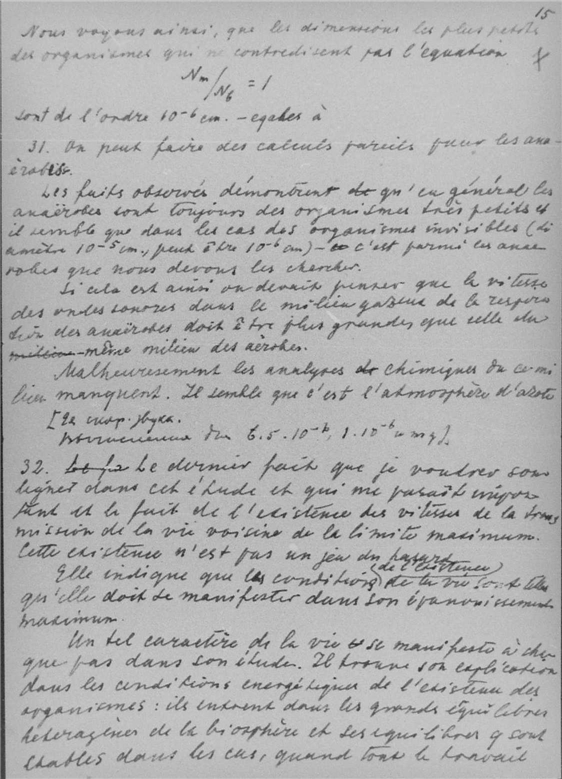 15
Nous voyons ainsi, que les dimensions les plus petites
des organismes qui ne contredisent pas l'équation
Nm/N6 = 1
sont de l'ordre 10-6 cm. – egales à
31. On peut faire des calculs pareils pour les ana-
érobies.
Les faits observés démontrent de qu'en général les
anaérobes sont toujours des organismes très petits et
il semble que dans les cas des organismes invisibles (di
amètre 10-5 cm., peut être 10-6 cm) – c'est parmi les anae
robes que nous devons les chercher.
Si cela est ainsi on devait penser que la vitesse
des ondes sonores dans le milieu gazeux de la respira
tion des anaérobes doit être plus grandes que celle du
même milieu des aérobes.
Malheureusement les analyses de chimiques du ce mi
lieu manquent. Il semble que c'est l'atmosphère d'azote
[скор. звука.
5.10-6, 1.10-6
32. Le dernier fait que je voudrez sou
ligner dans cet étude et qui me parait impor
tant et le fait de l'existence des vitesses de la trans
mission de la vie voisine de la limite maximum.
Cette existence n'est pas un jeu du hasard
Elle indique que les conditions (de l'existence) de la vie sont telles
qu'elle doit se manifester dans son épanouissement
maximum.
Un tel caractère de la vie se manifeste à cha-
que pas dans son étude. Il trouve son explication
dans les conditions energétiques de l'existence des
organismes: ils entrent dans les grands équilibres
heterogènes de la biosphère et ses equilibres y sont
stables dans les cas, quand tout le travail